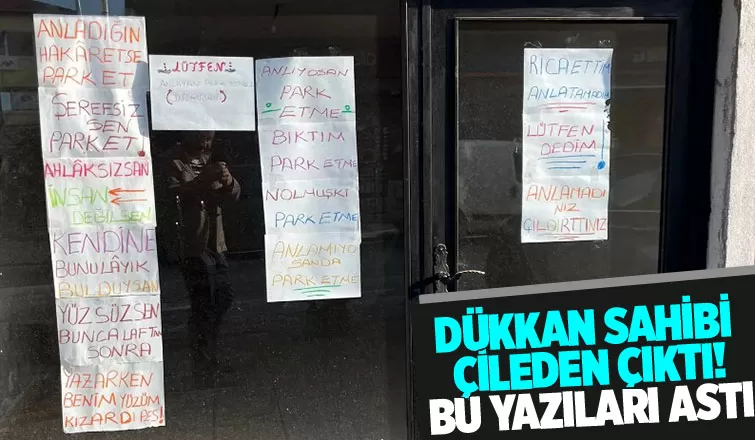 ANLADIĞIN
HAKÂRETSE
PARK ET
ŞEREFSİZ
SEN
PARKET!
AHLÂKSIZSAN
İNSAN
DEĞİLSEN
KENDİNE
BUNU LÂYIK
BULDUYSAN
YÜZSÜZSEN
BUNCA LAFTAN
SONRA
YAZARKEN
BENİM YÜZÜM
KIZARDI PES!
LÜTFEN
ANLIYOSAN
PARK
ETME
BIKTIM
PARK ETME
NOLMUŞKİ
PARK ETME
ANLAMIYO
SANDA
PARK ETME
RİCA ETTİM
ANLATAMADIM
LÜTFEN
DEDİM!
ANLAMADI
NIZ
ÇILDIRTTINIZ
DÜKKAN SAHİBİ
ÇİLEDEN ÇIKTI!
BU YAZILARI ASTI